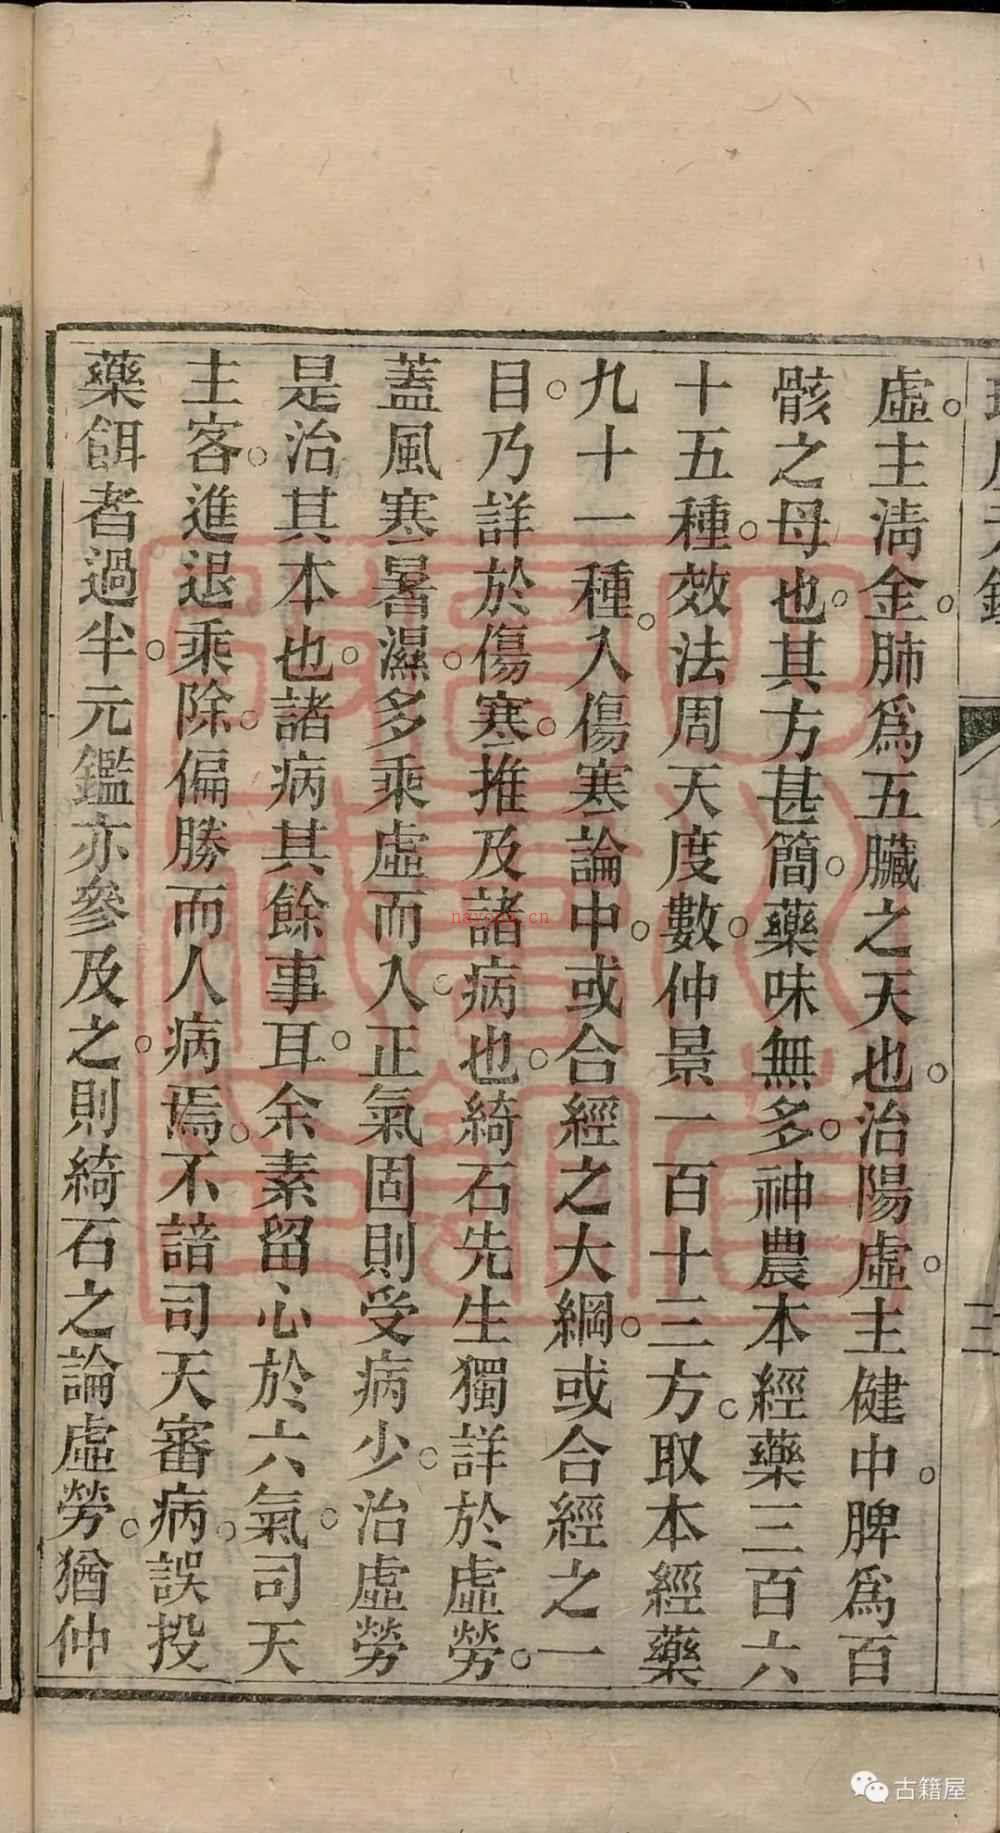 虛主淸金肺爲五臟之天也治陽虛主健中脾爲百
骸之母也其方甚簡藥味無多神農本經藥三百六
十五種效法周天度數仲景一百十三方取本經藥
九十一種入傷寒論中或合經之大綱或合經之一
目乃詳於傷寒推及諸病也綺石先生獨詳於虛勞
蓋風寒暑濕多乘虛而入正氣固則受病少治虛勞
是治其本也諸病其餘事耳余素留心於六氣司天
主客進退乘除偏勝而人病焉不諳司天審病誤投
藥餌者過半元鑑亦參及之則綺石之論虛勞猶仲
古籍屋